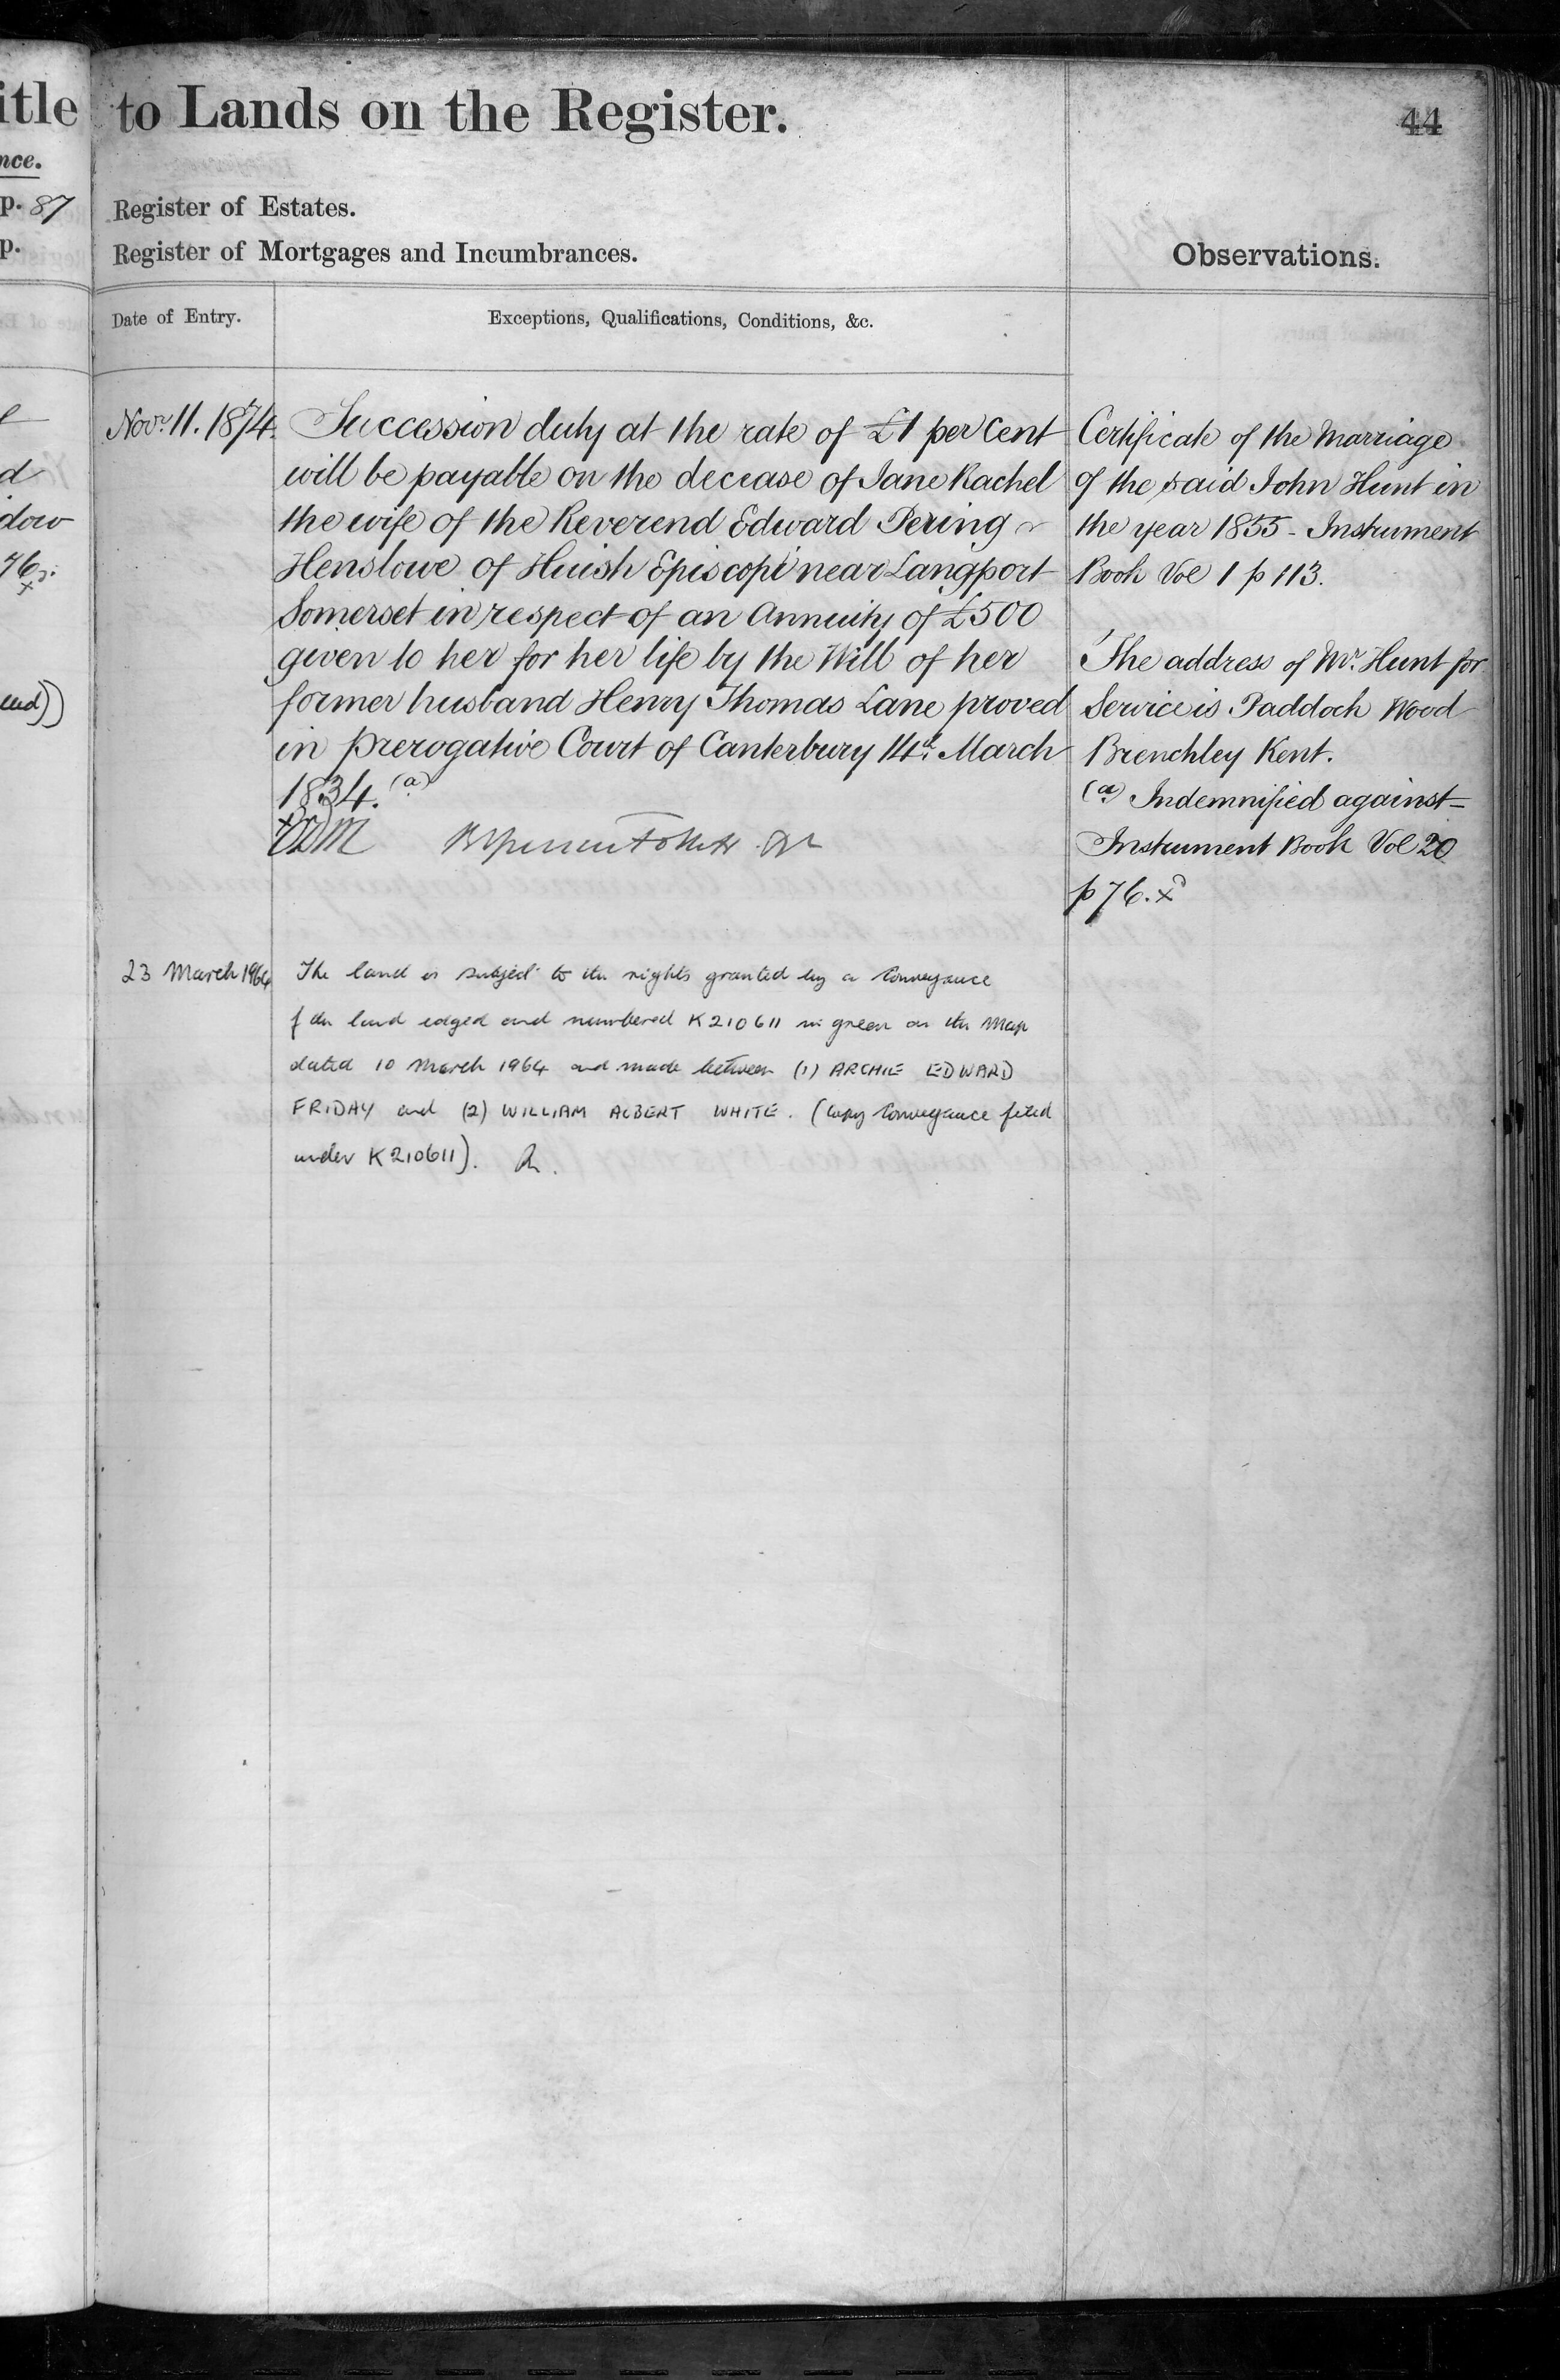 itle to Lands on the Register.
44
nce.
p. 87
p.
Register of Estates.
Register of Mortgages and Incumbrances.
Observations.
Date of Entry.
Exceptions, Qualifications, Conditions, &c.
Novr. 11. 1874.
Succession duty at the rate of £1 per Cent
will be payable on the decease of Jane Rachel
the wife of the Reverend Edward Pering
Henslowe of Huish Episcopi near Langport
Somerset in respect of an Annuity of £500
given to her for her life by the Will of her
former husband Henry Thomas Lane proved
in Prerogative Court of Canterbury 14th. March
1834. (a)
Certificate of the Marriage
of the said John Hunt in
the year 1855 - Instrument
Book Vol 1 p 113.
The address of Mr. Hunt for
Service is Paddock Wood
Brenchley Kent.
(a) Indemnified against =
Instrument Book Vol 20
p 76. x
d
dow
76
23 March 1964
The land is subject to the rights granted by a Conveyance
of the land edged and numbered K210611 in green on the Map
dated 10 March 1964 and made between (1) ARCHIE EDWARD
FRIDAY and (2) WILLIAM ALBERT WHITE. (Copy Conveyance filed
under K210611).